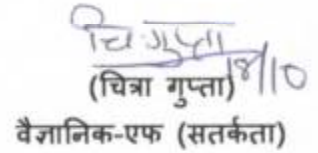 चि गुप्ता
18/10
(चित्रा गुप्ता)
वैज्ञानिक-एफ (सतर्कता)